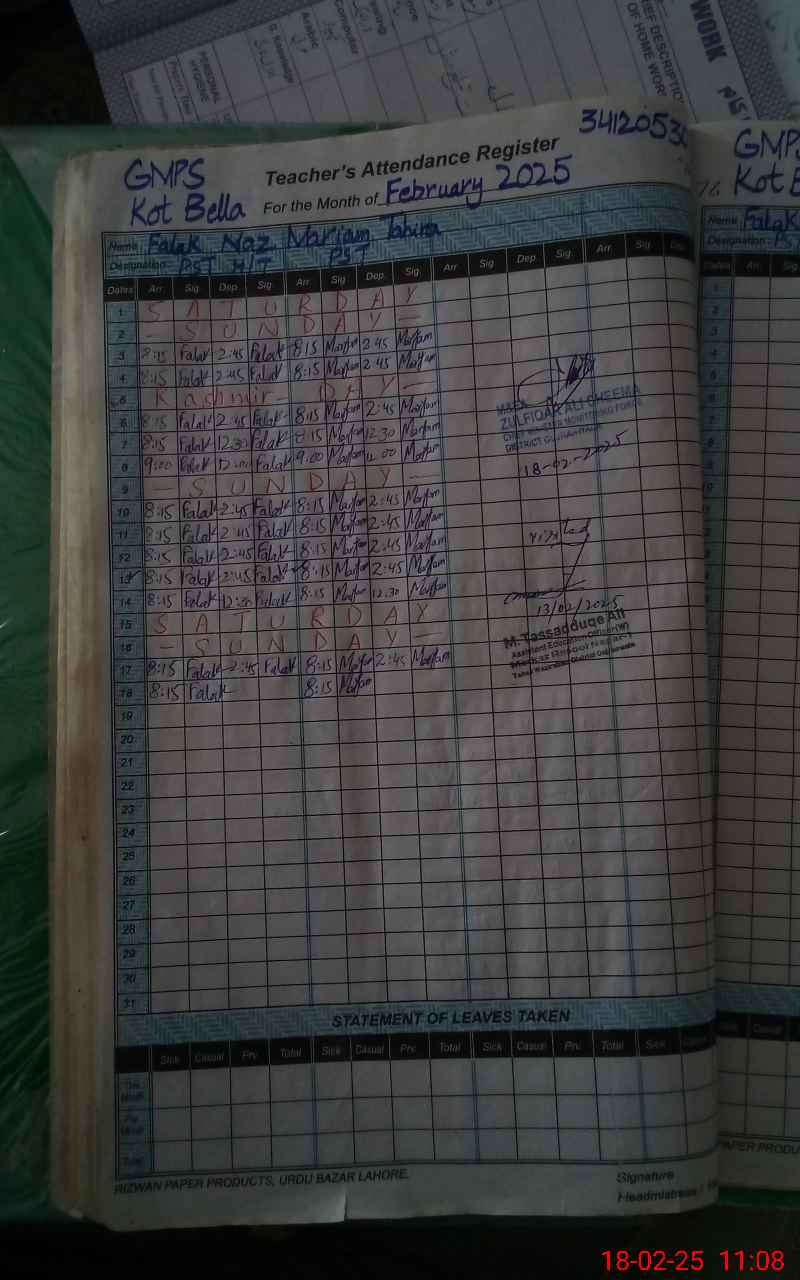 WORK
OF HOME WORK
PERSONAL
HYGIENE
Arabic
Computer
3412053
GMPS
Teacher's Attendance Register
Kot Bella
For the Month of February 2025
Name Falak Naz Mariam Tahira
Designation: PST H/T PST
Dates Arr. Sig. Dep. Sig. Arr. Sig. Dep. Sig. Arr. Sig. Dep. Sig. Arr. Sig.
1 S A T U R D A Y
2 — S U N D A Y —
3 8:15 Falak 2:45 Falak 8:15 Maryam 2:45 Maryam
4 8:15 Falak 2:45 Falak 8:15 Maryam 2:45 Maryam
5 Kashmir - DAY —
6 8:15 Falak 2:45 Falak 8:15 Maryam 2:45 Maryam
7 8:15 Falak 12:30 Falak 8:15 Maryam 12:30 Maryam
8 9:00 Falak 12:00 Falak 9:00 Maryam 12:00 Maryam
9 — S U N D A Y —
10 8:15 Falak 2:45 Falak 8:15 Maryam 2:45 Maryam
11 8:15 Falak 2:45 Falak 8:15 Maryam 2:45 Maryam
12 8:15 Falak 2:45 Falak 8:15 Maryam 2:45 Maryam
13 8:15 Falak 2:45 Falak 8:15 Maryam 2:45 Maryam
14 8:15 Falak 12:30 Falak 8:15 Maryam 12:30 Maryam
15 S A T U R D A Y
16 — S U N D A Y —
17 8:15 Falak 2:45 Falak 8:15 Maryam 2:45 Maryam
18 8:15 Falak 8:15 Maryam
19
20
21
22
23
24
25
26
27
28
29
30
31
ZULFIQAR ALI CHEEMA
CHIEF MINISTER MONITORING FORCE
DISTRICT GUJRANWALA
18-02-2025
Visited
13/02/2025
M.Tassadduqe Ali
Assistent Education Officer(M)
STATEMENT OF LEAVES TAKEN
Sick Casual Prv. Total Sick Casual Prv. Total Sick Casual Prv. Total Sick
Total
RIZWAN PAPER PRODUCTS, URDU BAZAR LAHORE.
Signature
Headmistress
GMPS
Kot B
Name Falak
Designation: PST
Dates Arr. Sig
Casual
PAPER PRODU
18-02-25 11:08